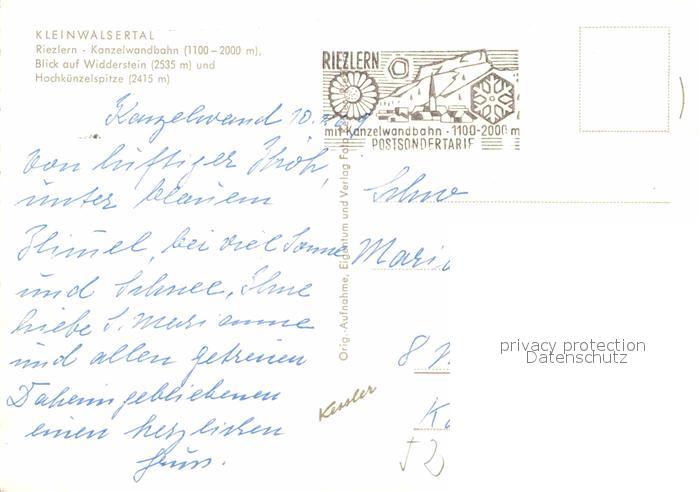 KLEINWALSERTAL
Riezlern - Kanzelwandbahn (1100 – 2000 m),
Blick auf Widderstein (2535 m) und
Hochkünzelspitze (2415 m)
RIEZLERN
mit Kanzelwandbahn - 1100-2000 m
POSTSONDERTARIF
Kanzelwand 10.
Von luftiger Höh,
unter blauem
Himmel, bei viel Sonne
und Schnee, Ihne
liebe S. Marianne
und allen getreuen
Daheimgebliebenen
einen herzlichen
Gruss.
Orig.-Aufnahme, Eigentum und Verlag Foto
Kessler
Schw
Maria
8 M
K
privacy protection
Datenschutz